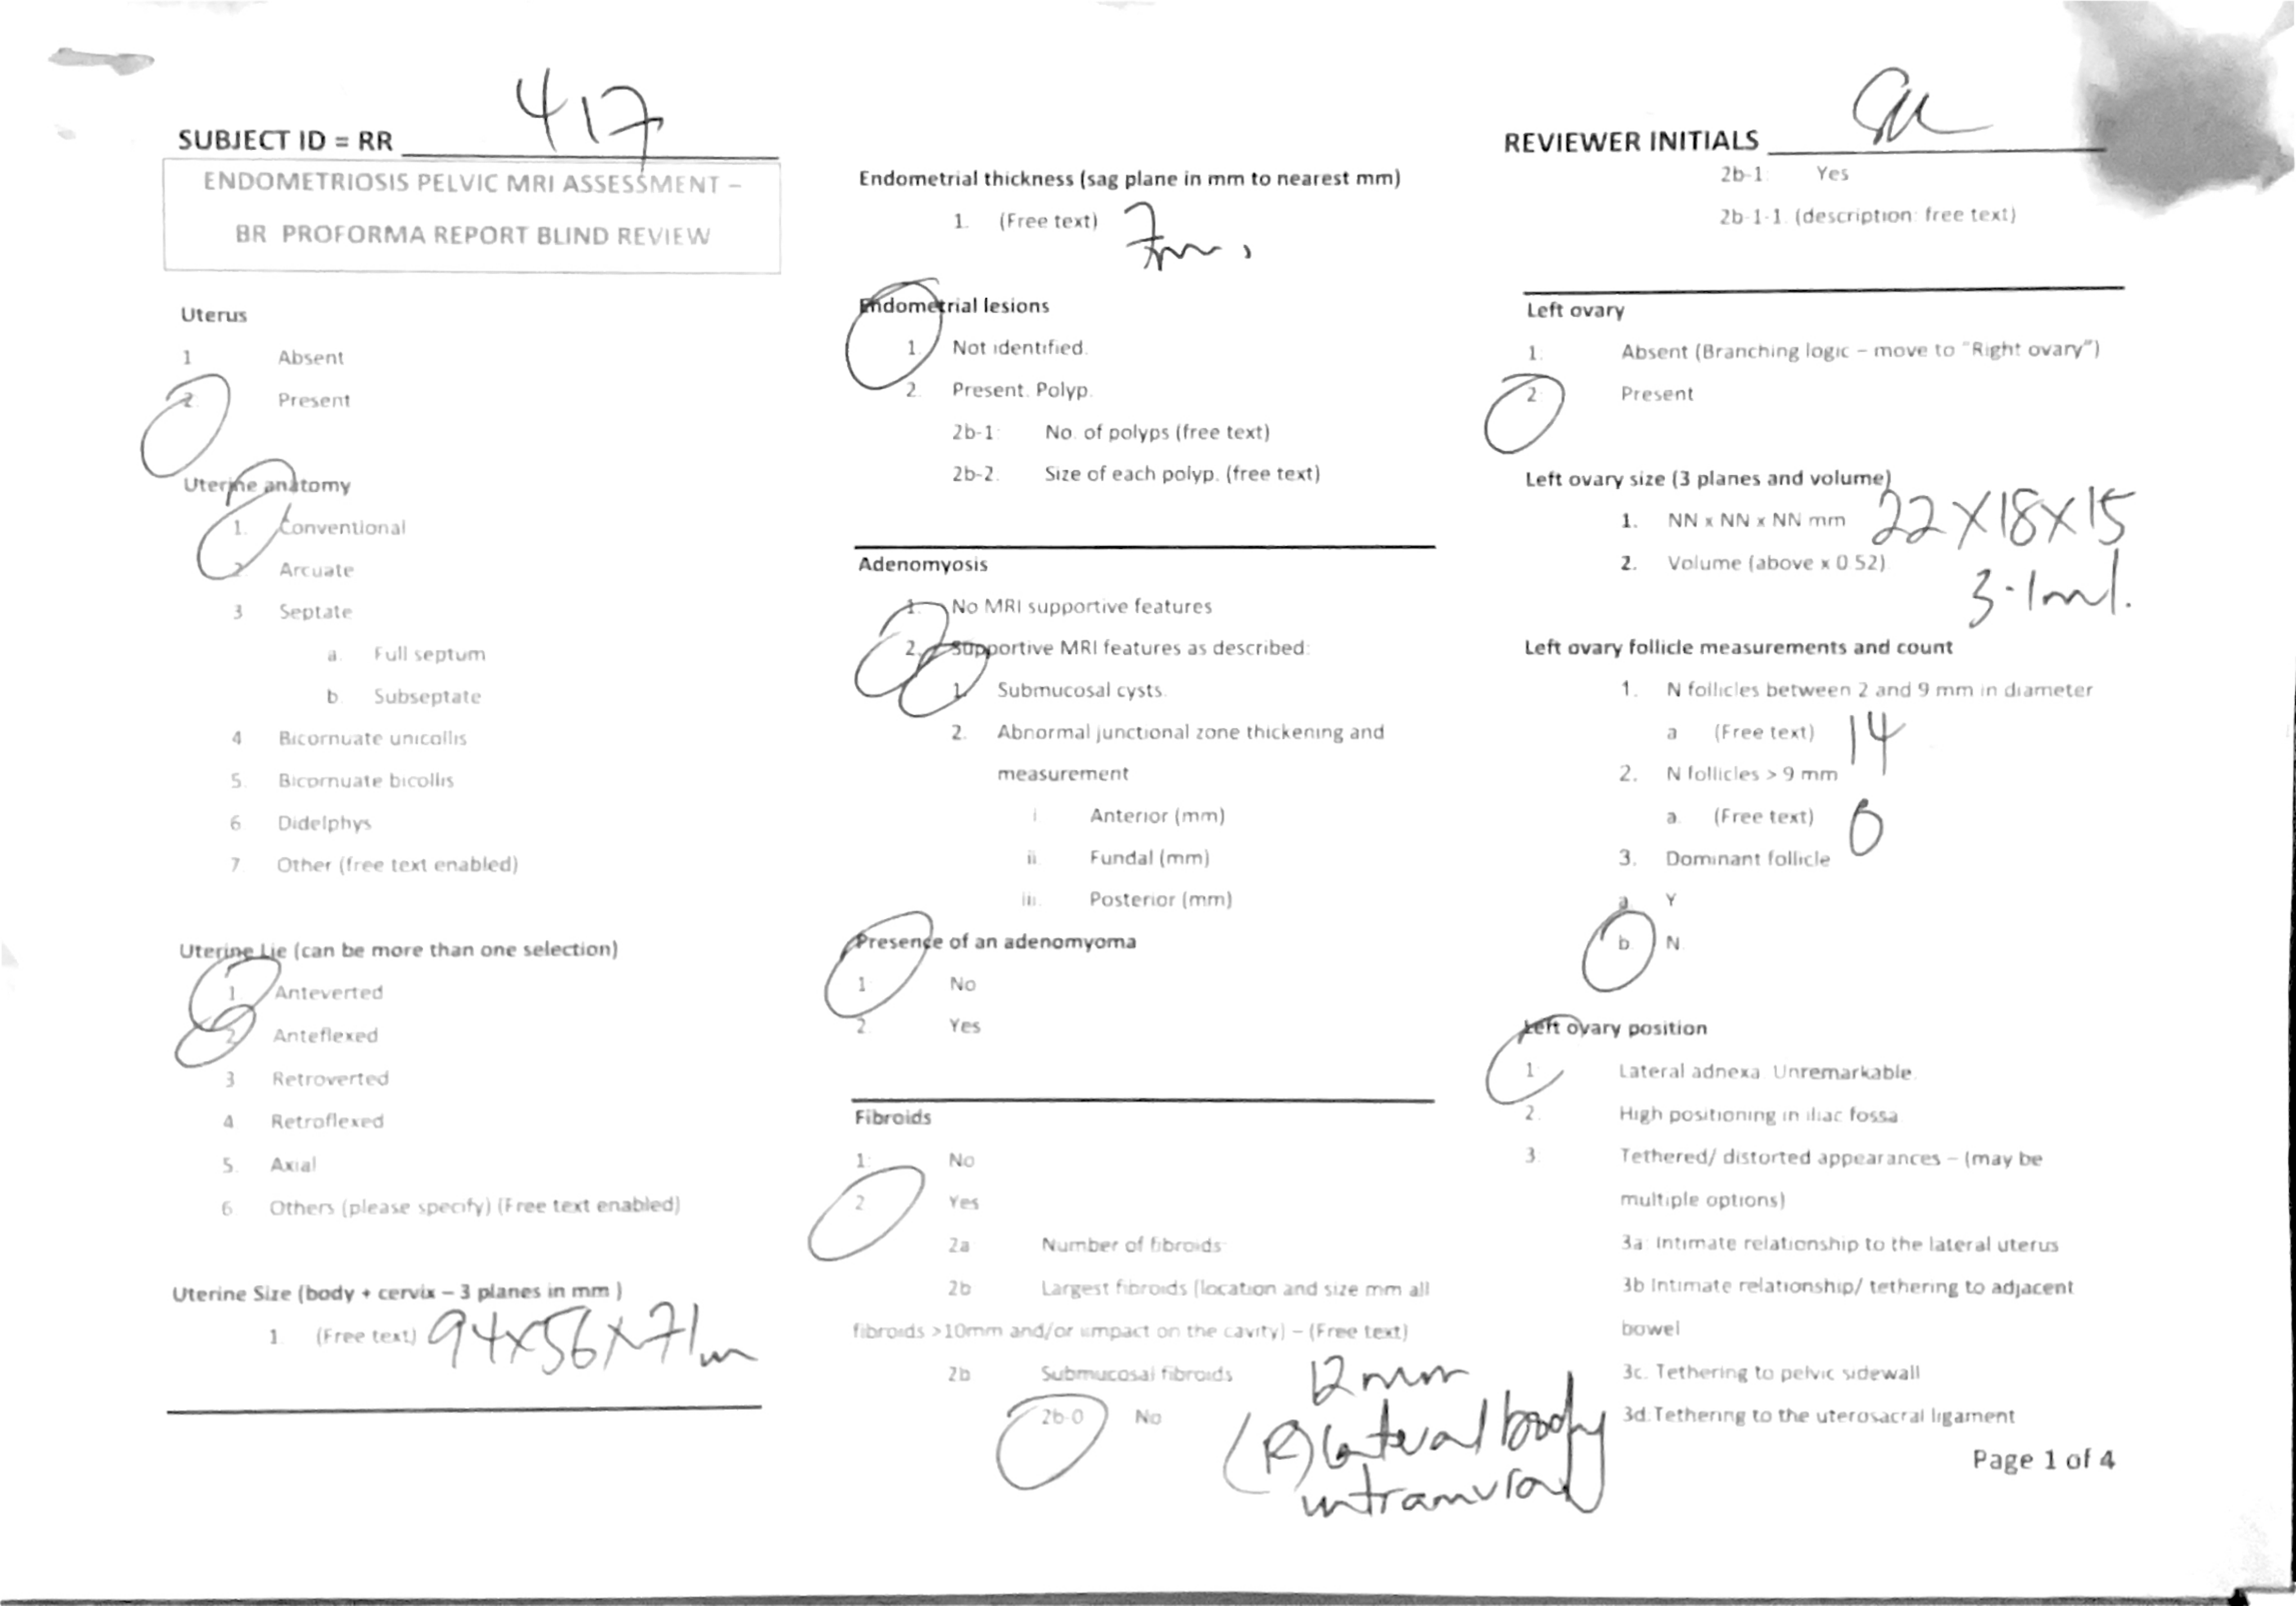 SUBJECT ID = RR 417
ENDOMETRIOSIS PELVIC MRI ASSESSMENT –
BR PROFORMA REPORT BLIND REVIEW
Uterus
1 Absent
2. Present
Uterine anatomy
1. Conventional
2. Arcuate
3 Septate
a. Full septum
b. Subseptate
4 Bicornuate unicollis
5. Bicornuate bicollis
6 Didelphys
7. Other (free text enabled)
Uterine Lie (can be more than one selection)
1 Anteverted
2 Anteflexed
3 Retroverted
4 Retroflexed
5. Axial
6. Others (please specify) (Free text enabled)
Uterine Size (body + cervix – 3 planes in mm )
1. (Free text) 94x56x71m
Endometrial thickness (sag plane in mm to nearest mm)
1. (Free text) 7mm.
Endometrial lesions
1. Not identified.
2. Present. Polyp.
2b-1: No. of polyps (free text)
2b-2. Size of each polyp. (free text)
Adenomyosis
1. No MRI supportive features
2. Supportive MRI features as described:
1. Submucosal cysts.
2. Abnormal junctional zone thickening and
measurement
i Anterior (mm)
ii Fundal (mm)
iii. Posterior (mm)
Presence of an adenomyoma
1 No
2. Yes
Fibroids
1: No
2 Yes
2a Number of fibroids
2b Largest fibroids (location and size mm all
fibroids >10mm and/or impact on the cavity) – (Free text)
2b Submucosal fibroids
2b-0 No
12mm
(R) lateral body
intramural
REVIEWER INITIALS
2b-1: Yes
2b-1-1. (description: free text)
Left ovary
1: Absent (Branching logic – move to "Right ovary")
2: Present
Left ovary size (3 planes and volume)
1. NN x NN x NN mm 22X18X15
2. Volume (above x 0.52) 3.1ml.
Left ovary follicle measurements and count
1. N follicles between 2 and 9 mm in diameter
a (Free text) 14
2. N follicles > 9 mm
a. (Free text) 0
3. Dominant follicle
a. Y
b N.
Left ovary position
1 Lateral adnexa Unremarkable.
2. High positioning in iliac fossa
3. Tethered/ distorted appearances – (may be
multiple options)
3a: Intimate relationship to the lateral uterus
3b Intimate relationship/ tethering to adjacent
bowel
3c. Tethering to pelvic sidewall
3d.Tethering to the uterosacral ligament
Page 1 of 4